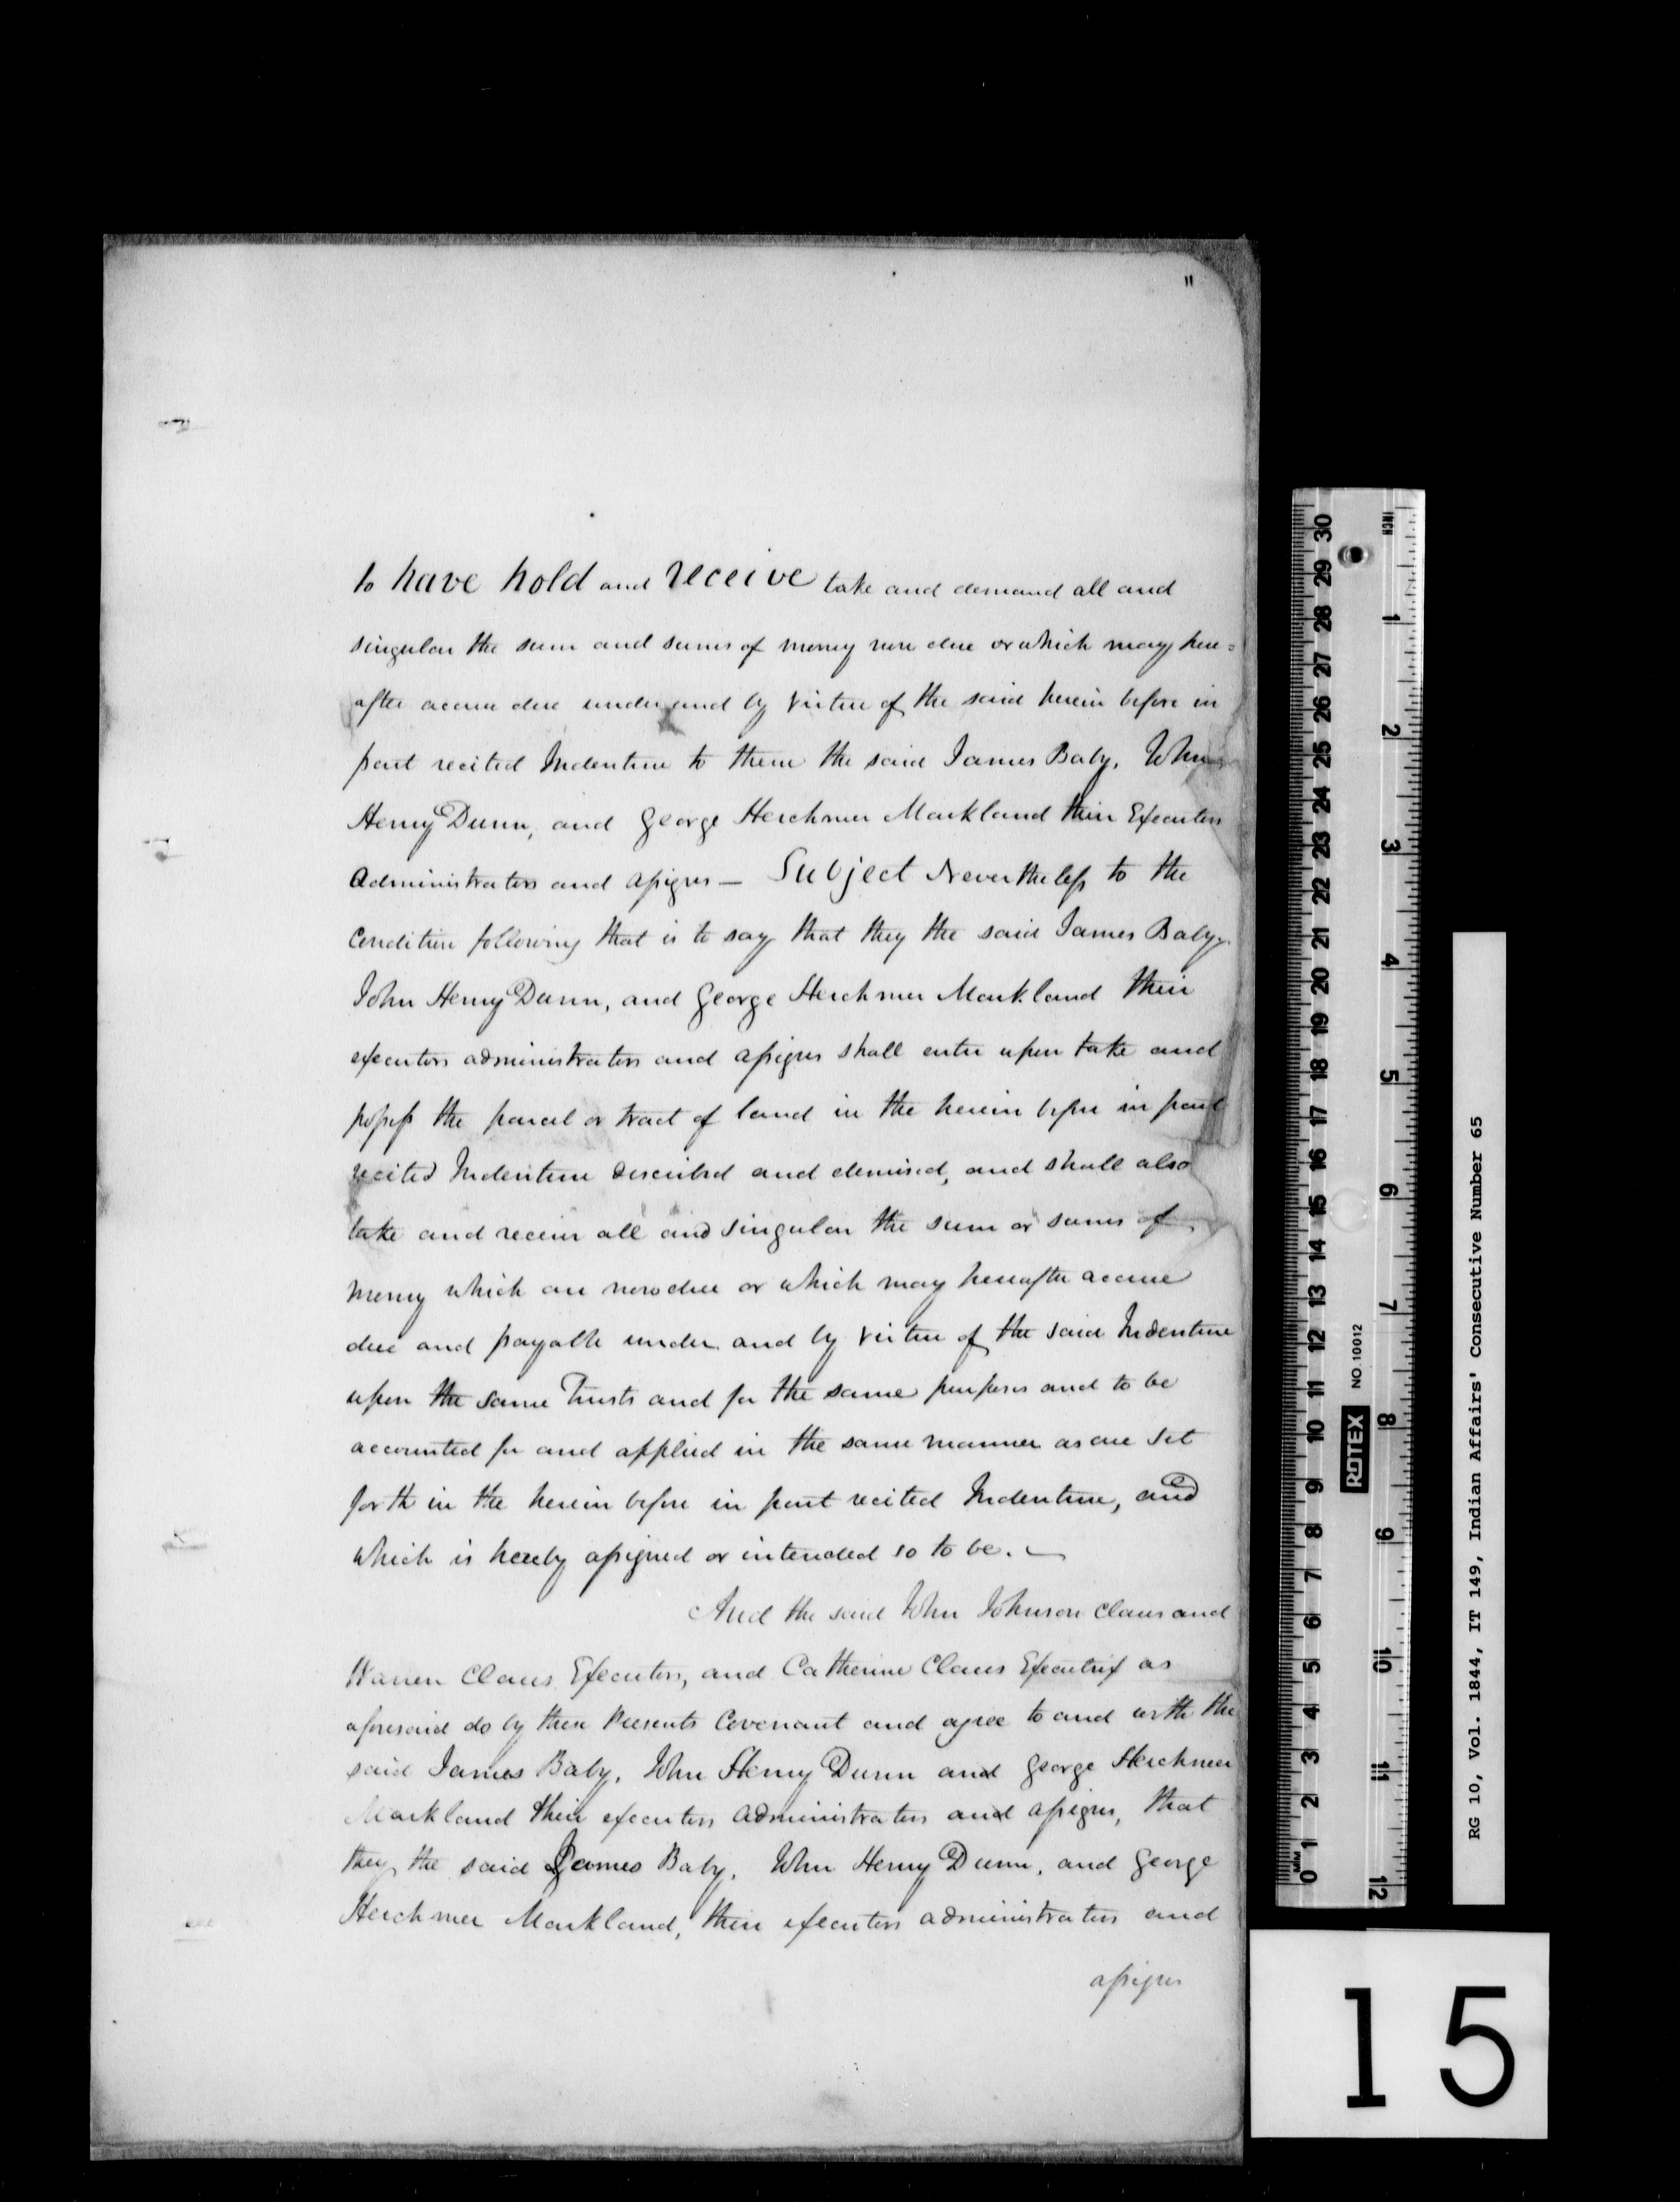 11
to have hold and receive take and demand all and
singular the sum and sums of money now due or which may here=
after accrue due under and by virtue of the said herein before in
part recited Indenture to them the said James Baby, John
Henry Dunn, and George Herchmer Markland their Executors
Administrators and assigns — Subject Nevertheless to the
Condition following that is to say that they the said James Baby,
John Henry Dunn, and George Herchmer Markland their
executors administrators and assigns shall enter upon take and
possess the parcel or tract of land in the herein before in part
recited Indenture described and demised, and shall also
take and receive all and singular the sum or sums of
money which are now due or which may hereafter accrue
due and payable under and by virtue of the said Indenture
upon the same Trusts and for the same purposes and to be
accounted for and applied in the same manner as are set
forth in the herein before in part recited Indenture, and
which is hereby assigned or intended so to be. —
And the said John Johnson Claus and
Warren Claus Executors, and Catherine Claus Executrix as
aforesaid do by these Presents Covenant and agree to and with the
said James Baby, John Henry Dunn and George Herchmer
Markland their executors administrators and assigns, that
they the said James Baby, John Henry Dunn, and George
Herchmer Markland, their executors administrators and
assigns
RG 10, Vol. 1844, IT 149, Indian Affairs' Consecutive Number 65
INCH
1 2 3 4 5 6 7 8 9 10 11 12
MM
0 1 2 3 4 5 6 7 8 9 10 11 12 13 14 15 16 17 18 19 20 21 22 23 24 25 26 27 28 29 30
ROTEX NO.10012
15